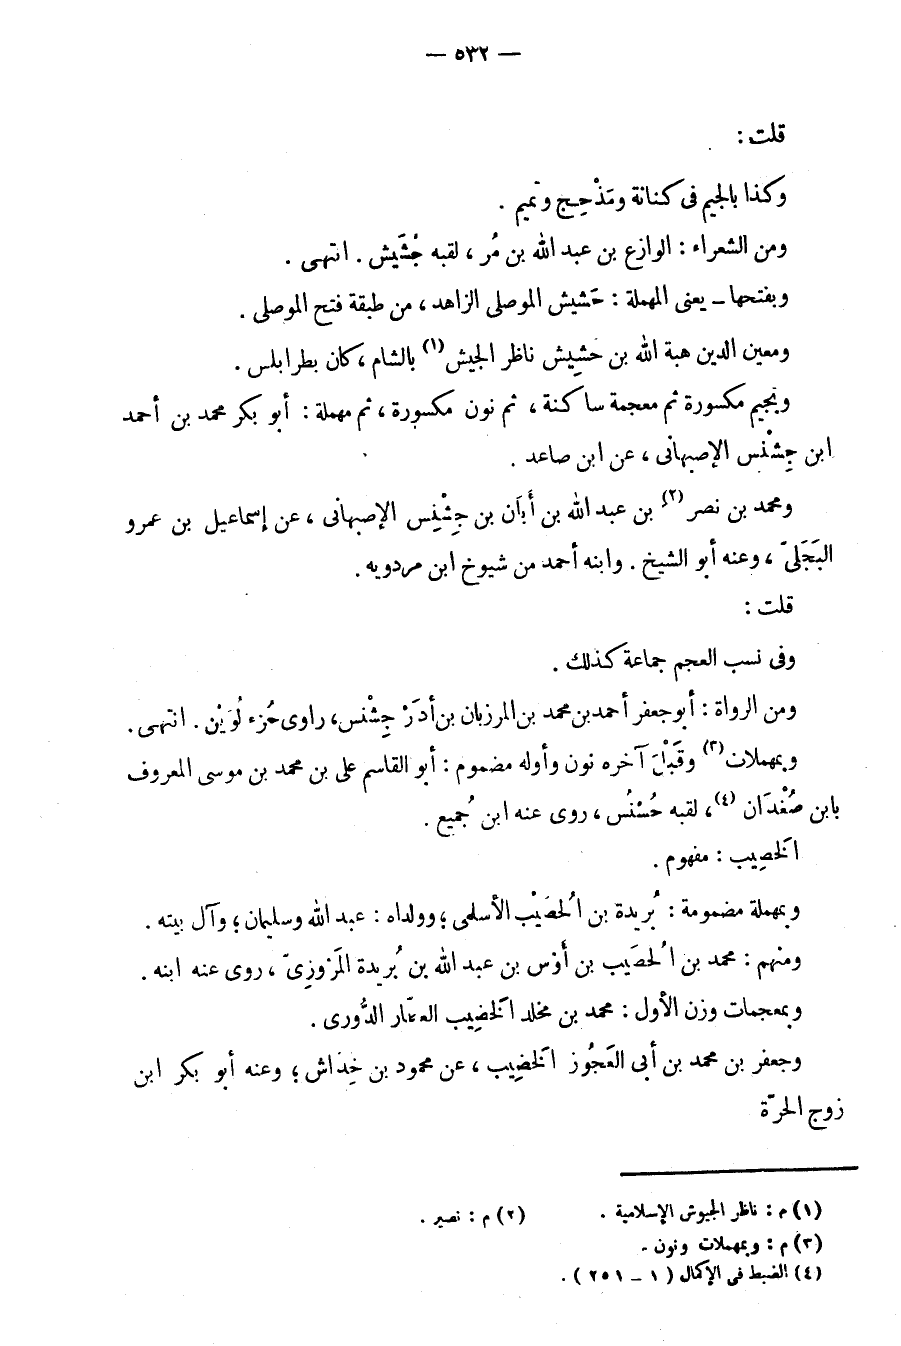 — ٥٣٢ —
قلت :
وكذا بالجيم فى كنانة ومَذْحِج وتميم .
ومن الشعراء : الوازع بن عبد الله بن مُر ، لقبه جُشَيش . انتهى .
وبفتحها ــ يعنى المهملة : حَشيش الموصلى الزاهد ، من طبقة فتح الموصلى .
ومعين الدين هبة الله بن حشيش ناظر الجيش (١) بالشام ، كان بطرابلس .
وبجيم مكسورة ثم معجمة ساكنة ، ثم نون مكسورة ، ثم مهملة : أبو بكر محمد بن أحمد
ابن جِشْنس الإصبهانى ، عن ابن صاعد .
ومحمد بن نصر (٢) بن عبد الله بن أَبَان بن جِشْنِس الإصبهانى ، عن إسماعيل بن عمرو
البَجَلىّ ، وعنه أبو الشيخ . وابنه أحمد من شيوخ ابن مردويه .
قلت :
وفى نسب العجم جماعة كذلك .
ومن الرواة : أبو جعفر أحمد بن محمد بن المرزبان بن أدَرْ جِشْنس، راوى جُزء لُوَيْن . انتهى .
وبمهملات (٣) وقَبْلَ آخره نون وأوله مضموم : أبو القاسم على بن محمد بن موسى المعروف
بابن صُغْدَان (٤) ، لقبه حُسْنُس ، روى عنه ابن جُميع .
الخَصِيب : مفهوم .
وبمهملة مضمومة : بُريدة بن الُحصَيْب الأسلمى ؛ وولداه : عبد الله وسليمان ؛ وآل بيته .
ومنهم : محمد بن الُحصَيب بن أوْس بن عبد الله بن بُريدة المَرْوزِىّ ، روى عنه ابنه .
وبمعجمات وزن الأول : محمد بن مخلد الَخضِيب العطّار الدُّورى .
وجعفر بن محمد بن أبى العَجُوز الَخضِيب ، عن محمود بن خِدَاش ؛ وعنه أبو بكر ابن
زوج الحرّة
(١) م : ناظر الجيوش الإسلامية . (٢) م : نصير .
(٣) م : وبمهملات ونون .
(٤) الضبط فى الإكمال ( ١ ــ ٢٥١ ) .